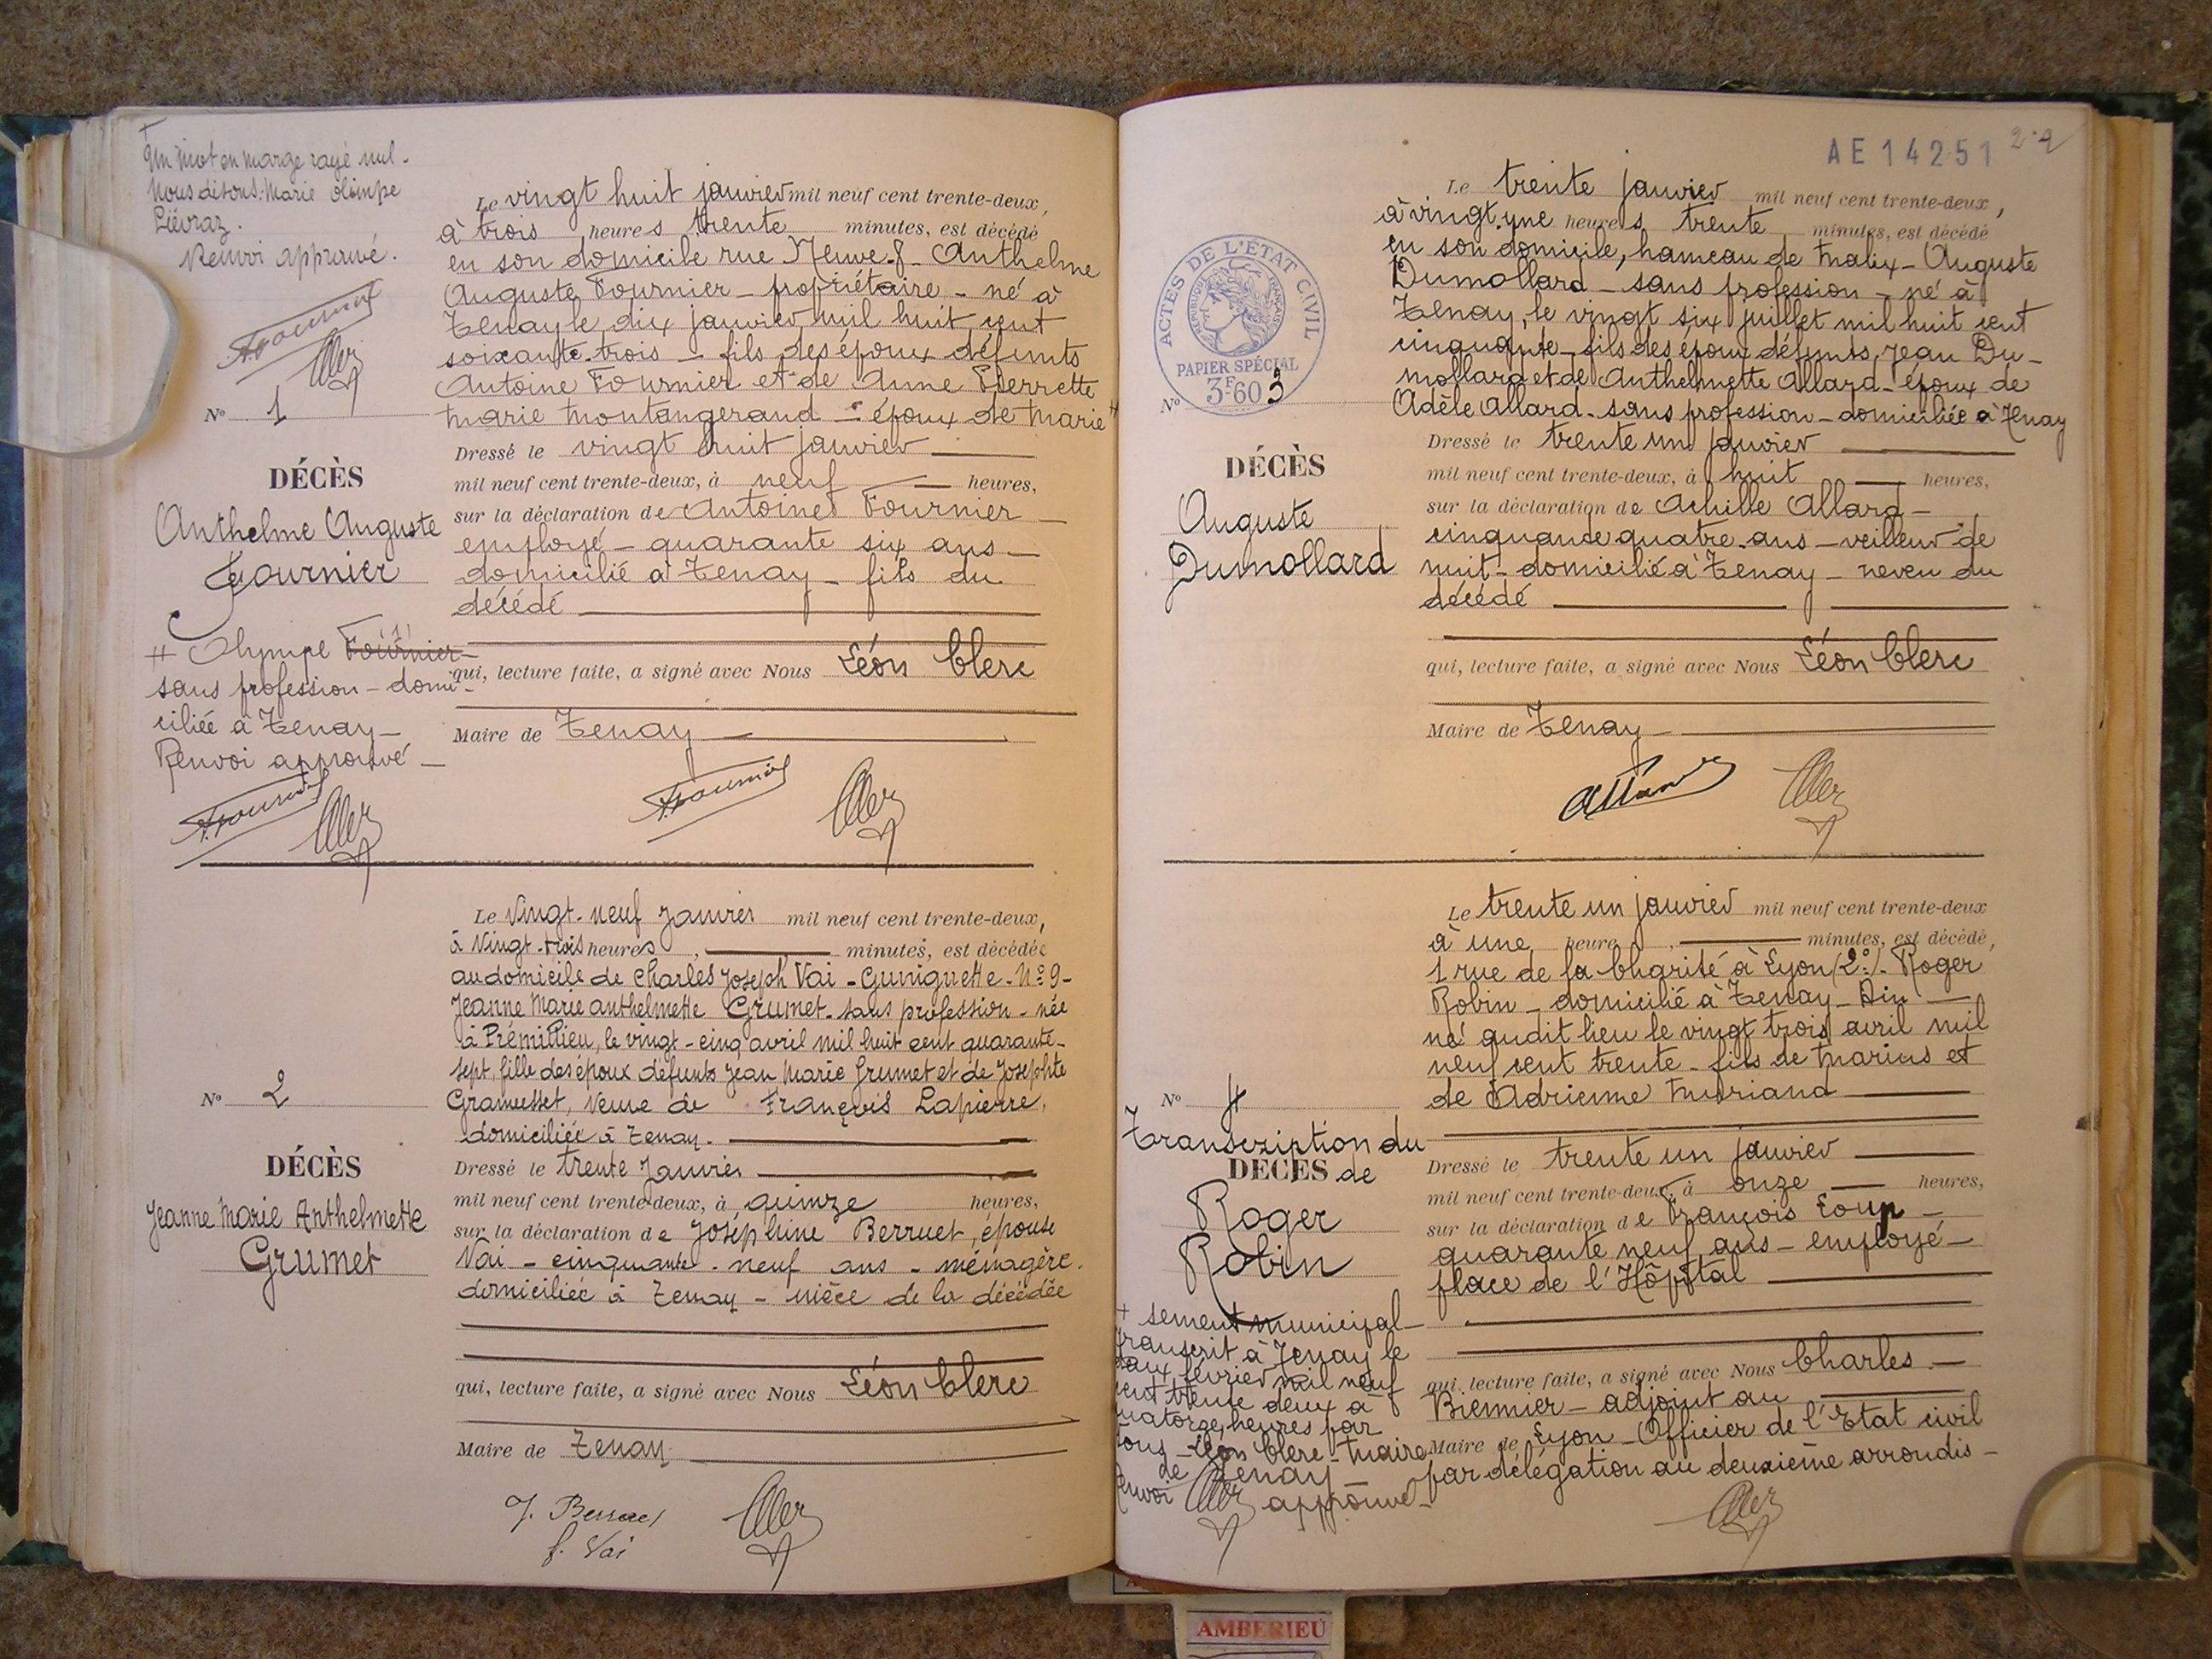 Un mot en marge rayé nul -
Nous disons: Marie Olimpe
Liévraz.
Renvoi approuvé.
Le vingt huit janvier mil neuf cent trente-deux,
à trois heures trente minutes, est décédé
en son domicile rue Neuve-8- Anthelme
Auguste Fournier - propriétaire - né à
Tenay le dix janvier mil huit cent
soixante-trois - fils des époux défunts
Antoine Fournier et de Anne Pierrette
Marie Montangerand - époux de Marie #
N° 1
DÉCÈS
Anthelme Auguste
Fournier
# Olympe Fournier -
sans profession - domi-
ciliée à Tenay -
Renvoi approuvé -
Dressé le vingt huit janvier
mil neuf cent trente-deux, à neuf heures,
sur la déclaration de Antoine Fournier -
employé - quarante six ans -
domicilié à Tenay - fils du
décédé
qui, lecture faite, a signé avec Nous Léon Clerc
Maire de Tenay -
A. Fournier
Le Vingt-neuf Janvier mil neuf cent trente-deux,
à Vingt-trois heures, minutes, est décédée
au domicile de Charles Joseph Vai - Guinguette - N° 9 -
Jeanne Marie Anthelmette Grumet - sans profession - née
à Prémillieu, le vingt-cinq avril mil huit cent quarante-
sept, fille des époux défunts Jean Marie Grumet et de Josephte
Gramusset, Veuve de François Lapierre,
domiciliée à Tenay.
N° 2
DÉCÈS
Jeanne Marie Anthelmette
Grumet
Dressé le trente Janvier
mil neuf cent trente-deux, à quinze heures,
sur la déclaration de Joséphine Berruet, épouse
Vai - cinquante-neuf ans - ménagère.
domiciliée à Tenay - nièce de la décédée
qui, lecture faite, a signé avec Nous Léon Clerc
Maire de Tenay
J. Berruet
f. Vai
AE 14251
ACTES DE L'ETAT CIVIL
RÉPUBLIQUE FRANÇAISE
PAPIER SPÉCIAL
3F60
Le trente janvier mil neuf cent trente-deux,
à vingt-une heures trente minutes, est décédé
en son domicile, hameau de Malix - Auguste
Dumollard - sans profession - né à
Tenay, le vingt six juillet mil huit cent
cinquante - fils des époux défunts, Jean Du-
mollard et de Anthelmette Allard - époux de
Adèle Allard - sans profession - domiciliée à Tenay
N° 3
DÉCÈS
Auguste
Dumollard
Dressé le trente un janvier
mil neuf cent trente-deux, à huit heures,
sur la déclaration de Achille Allard -
cinquante quatre ans - veilleur de
nuit - domicilié à Tenay - neveu du
décédé
qui, lecture faite, a signé avec Nous Léon Clerc
Maire de Tenay -
Allard
Le trente un janvier mil neuf cent trente-deux
à une heure, minutes, est décédé,
1 rue de la Charité à Lyon (2e). Roger
Robin - domicilié à Tenay - Ain -
né audit lieu le vingt trois avril mil
neuf cent trente - fils de Marius et
de Adrienne Muriand
N° 4
Transcription du
DÉCÈS de
Roger
Robin
Dressé le trente un janvier
mil neuf cent trente-deux, à onze heures,
sur la déclaration de François Loup -
quarante neuf ans - employé -
place de l'Hôpital
qui, lecture faite, a signé avec Nous Charles -
Biennier - adjoint au
Maire de Lyon - Officier de l'Etat civil
par délégation au deuxième arrondis-
+ sement municipal -
Transcrit à Tenay le
deux février mil neuf
cent trente deux à
quatorze heures par
nous - Léon Clerc - Maire
de Tenay -
Renvoi approuvé -
AMBERIEU